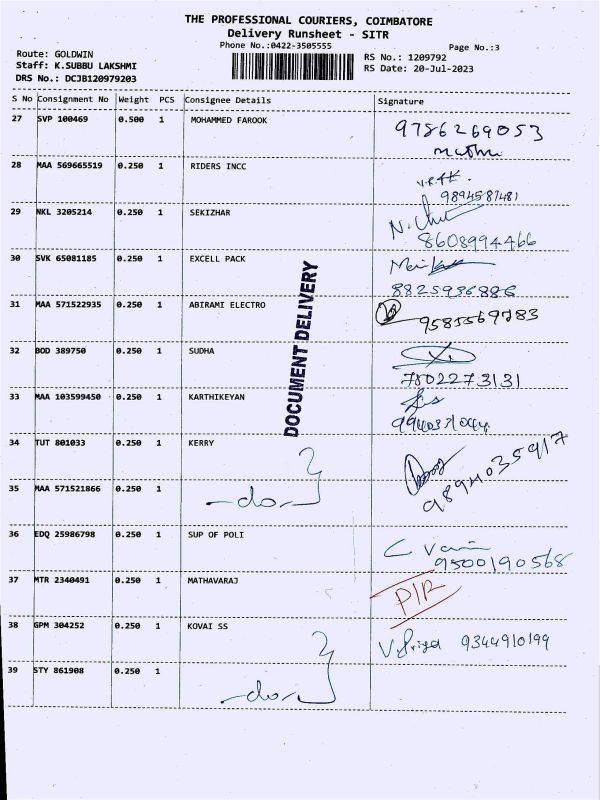 THE PROFESSIONAL COURIERS, COIMBATORE
Delivery Runsheet - SITR
Phone No.:0422-3505555
Page No.:3
Route: GOLDWIN
Staff: K.SUBBU LAKSHMI
DRS No.: DCJB120979203
RS No.: 1209792
RS Date: 20-Jul-2023
S No Consignment No Weight PCS Consignee Details Signature
27 SVP 100469 0.500 1 MOHAMMED FAROOK 9786269053
28 MAA 569665519 0.250 1 RIDERS INCC
9894587481
29 NKL 3205214 0.250 1 SEKIZHAR
8608994466
30 SVK 65081185 0.250 1 EXCELL PACK
8825936886
31 MAA 571522935 0.250 1 ABIRAMI ELECTRO
9585569783
32 BOD 389750 0.250 1 SUDHA
7502273131
33 MAA 103599450 0.250 1 KARTHIKEYAN
34 TUT 801033 0.250 1 KERRY
9894035917
35 MAA 571521866 0.250 1 -do-
36 EDQ 25986798 0.250 1 SUP OF POLI
9500190568
37 MTR 2340491 0.250 1 MATHAVARAJ P/R
38 GPM 304252 0.250 1 KOVAI SS V.Priya 9344910199
39 STY 861908 0.250 1 -do-
DOCUMENT DELIVERY